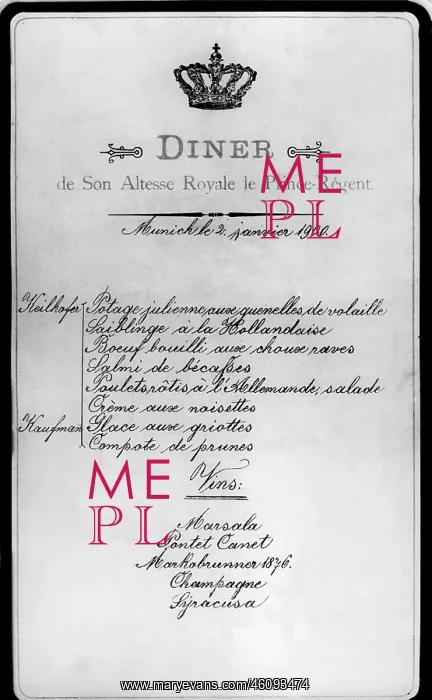 DINER
de Son Altesse Royale le Prince-Régent.
Munich le 2. janvier 1900.
Keilhofer Potage julienne aux quenelles de volaille
Saiblinge à la Hollandaise
Boeuf bouilli aux choux raves
Salmi de bécasses
Poulets rôtis à l'Allemande, salade
Crème aux noisettes
Kaufman Glace aux griottes
Compote de prunes
Vins:
Marsala
Pontet Canet
Markobrunner 1876.
Champagne
Syracusa
ME
PL
ME
PL
www.maryevans.com/46093474